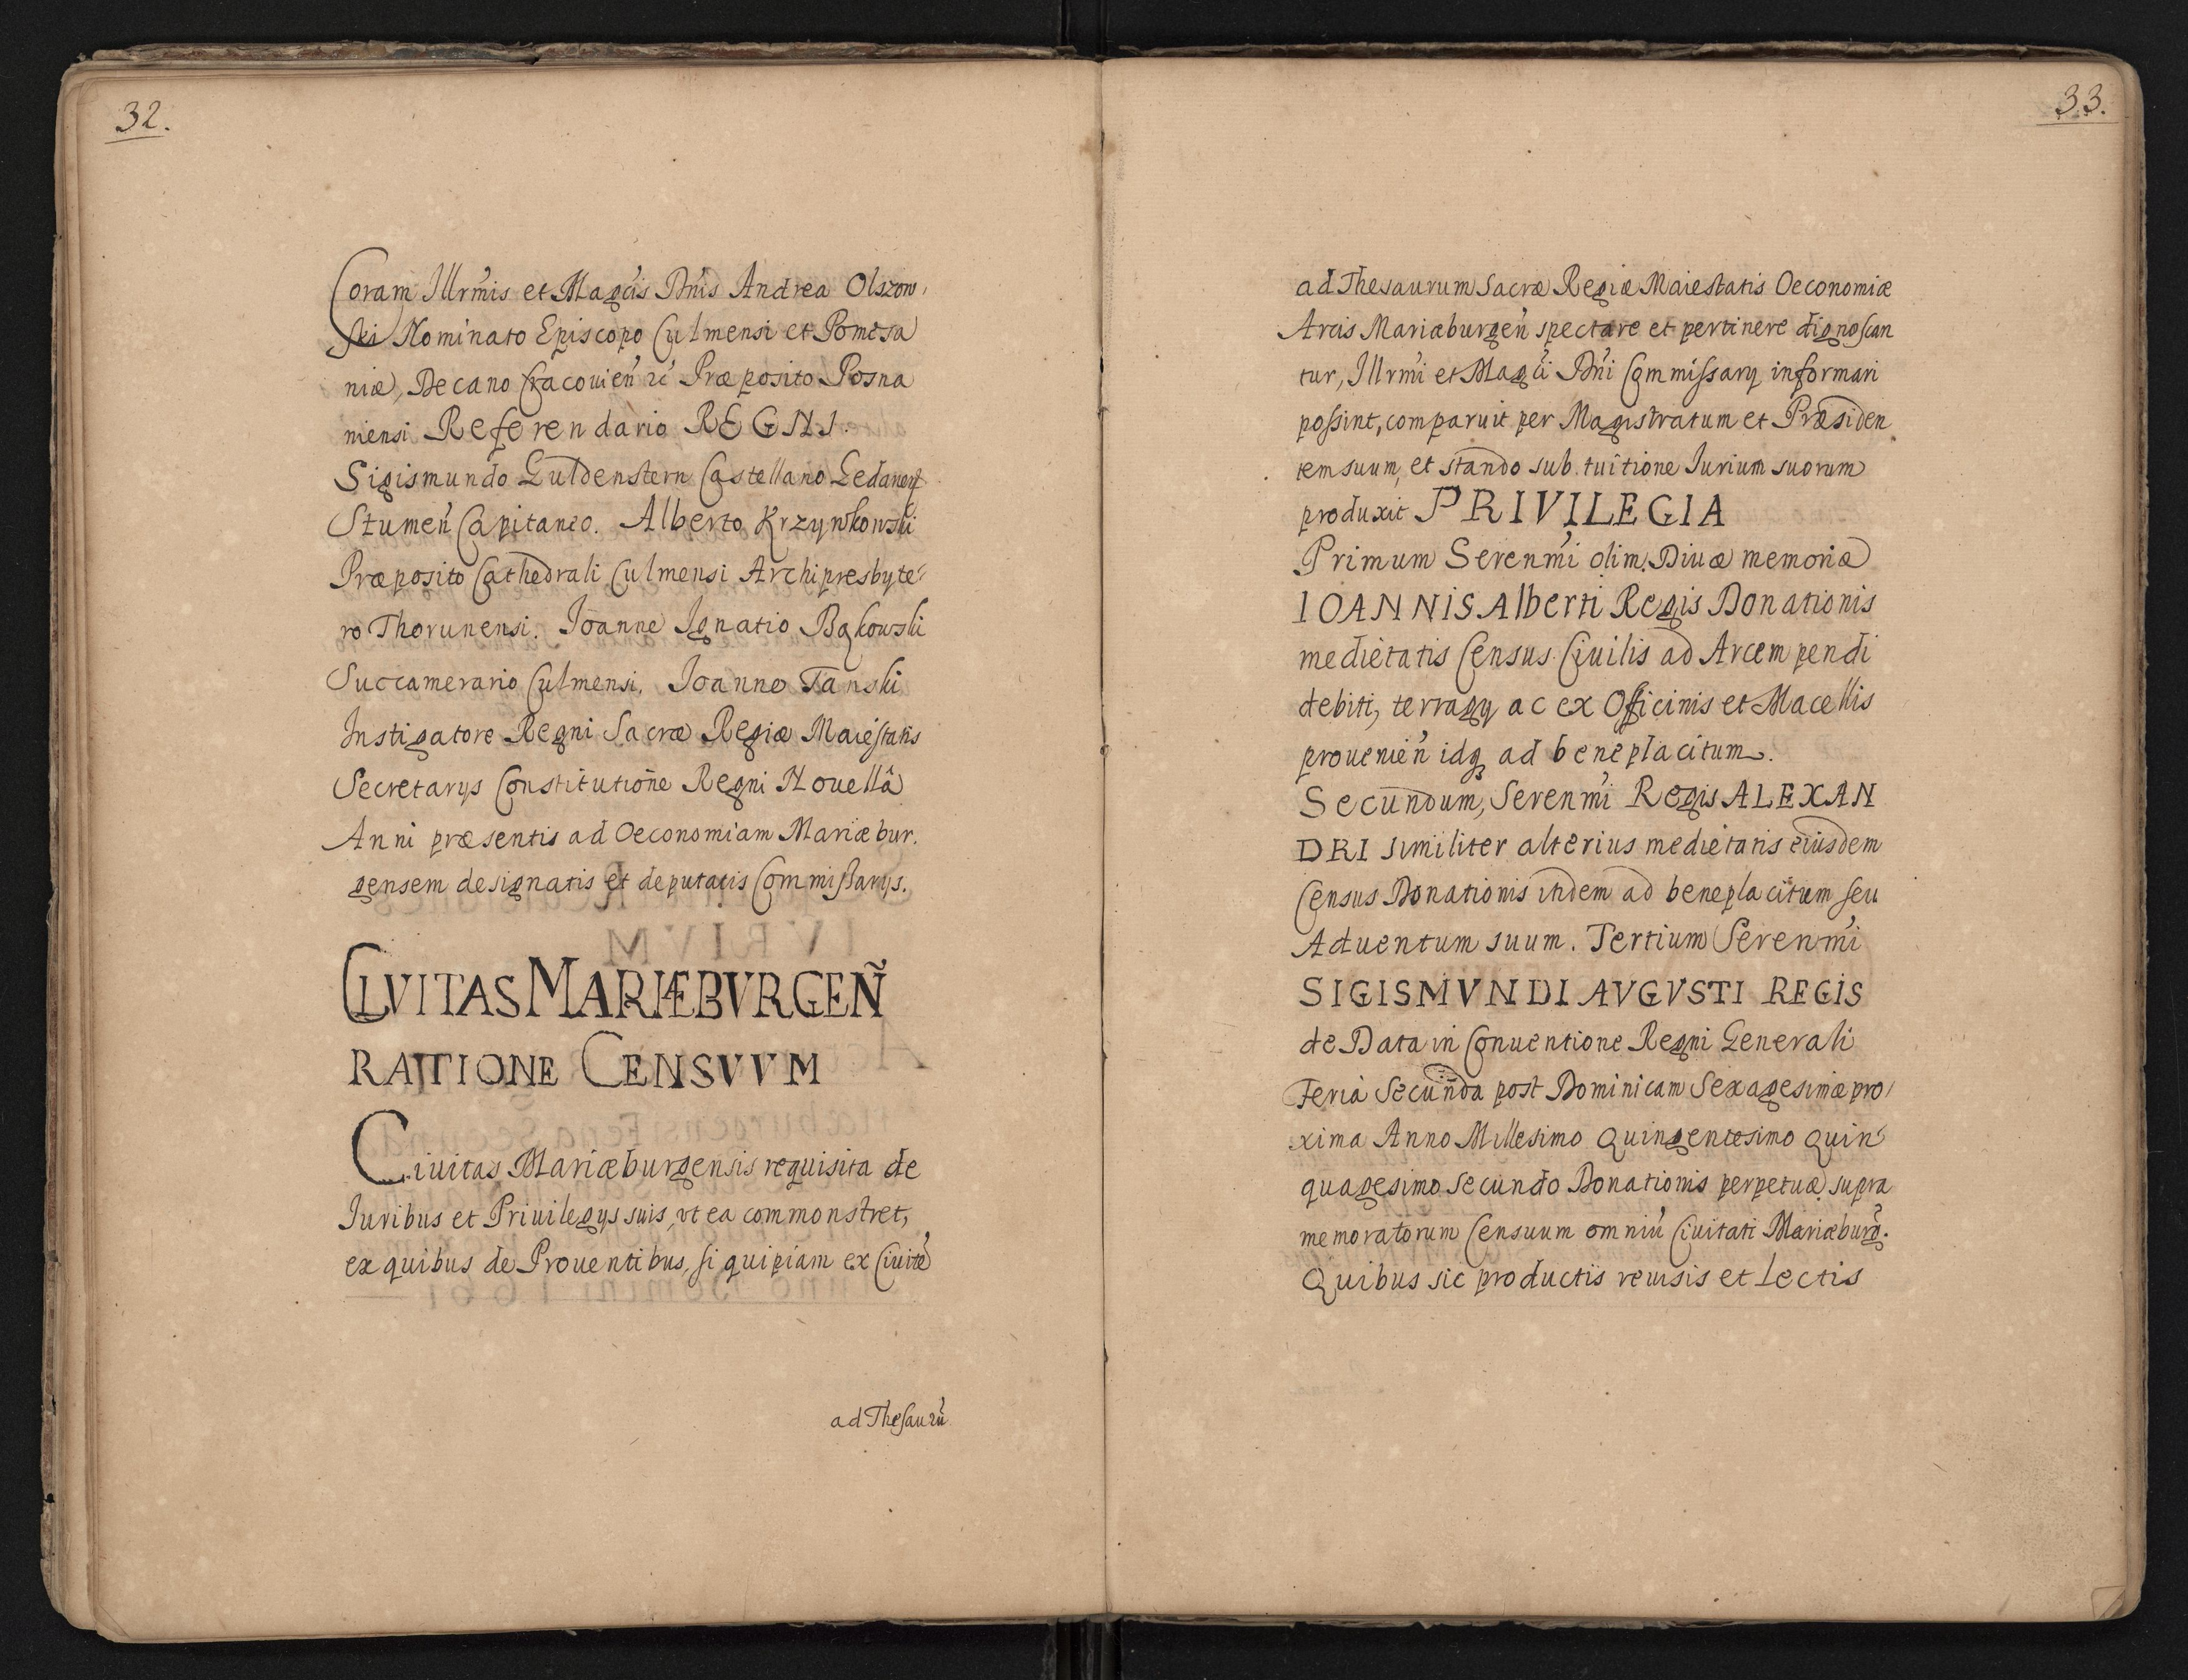 32.
Coram Illrm̃is et Magcis Dnis Andrea Olszow,
ski Nominato Episcopo Culmensi et Pomesa
niæ, Decano Cracouien̄ Præposito Posna
niensi Referendario REGNI.
Sigismundo Guldenstern Castellano Gedanen̄
Stumen̄ Capitaneo. Alberto Krzynkowski
Præposito Cathedrali Culmensi Archipresbyte-
ro Thorunensi. Ioanne Ignatio Bąkowski
Succamerario Culmensi, Ioanne Tanski
Instigatore Regni Sacræ Regiæ Maiestatis
Secretarijs Constitutione Regni Nouellâ
Anni præsentis ad Oeconomiam Mariæbur.
gensem designatis et deputatis Commissarijs.
CIVITAS MARIÆBVRGEÑ
RATIONE CENSVVM
Ciuitas Mariæburgensis requisita de
Iuribus et Priuilegijs suis, vt ea commonstret,
ex quibus de Prouentibus, si quipiam ex Ciuitē
ad Thesaurū
33.
ad Thesaurum Sacræ Regiæ Maiestatis Oeconomiæ
Arcis Mariæburgen̄ spectare et pertinere dignoscan
tur, Illrm̃i et Magci Dni Commissarij informari
possint, comparuit per Magistratum et Præsiden
tem suum, et stando sub tuitione Iurium suorum
produxit PRIVILEGIA
Primum Serenm̃i olim Diuæ memoriæ
IOANNIS Alberti Regis Donationis
medietatis Census Ciuilis ad Arcem pendi
debiti, terragij ac ex Officinis et Macellis
prouenien̄ idq ad beneplacitum.
Secundum, Serenm̃i Regis ALEXAN
DRI similiter alterius medietatis eiusdem
Census Donationis itidem ad beneplacitum seu
Aduentum suum. Tertium Serenm̃i
SIGISMVNDI AVGVSTI REGIS
de Data in Conuentione Regni Generali
Feria Secunda post Dominicam Sexagesimæ pro,
xima Anno Millesimo Quingentesimo Quin-
quagesimo secundo Donationis perpetuæ supra
memoratorum Censuum omniū Ciuitati Mariæburg.
Quibus sic productis reuisis et lectis